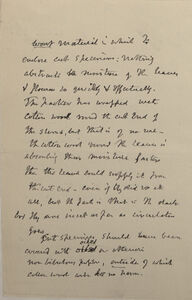 worst material in which to
enclose cut specimens: nothing
abstracts the moisture of the leaves
& flowers so quickly & effectually.
The practice has wrapped wet
cotton wool round the cut end of
the stems, but that is of no use –
the cotton wool round the leaves is
absorbing their moisture faster
than the leaves could supply it from
the cut end – even if they did so at
all, but the fact is that in the dark
box they are inert as far as circulation
goes.
Cut specimens should have been
covered with oiled or otherwise
non bibulous paper, outside of which
cotton wool does no harm.